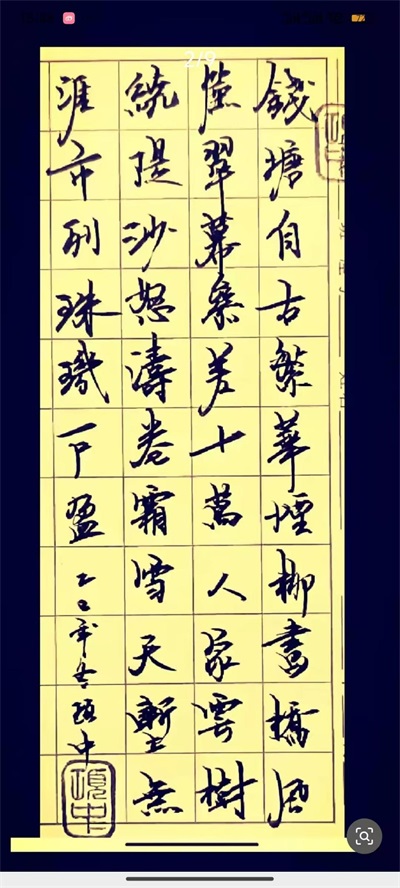 2/9
錢塘自古繁華煙柳畫橋風
簾翠幕參差十萬人家雲樹
繞隄沙怒濤卷霜雪天塹無
涯市列珠璣戶盈乙巳年冬項中
項中